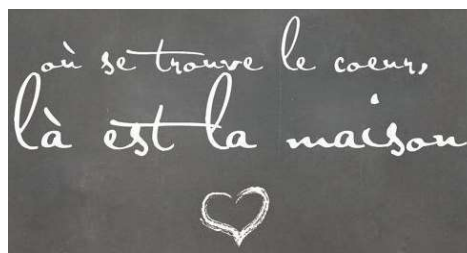 où se trouve le coeur,
là est la maison